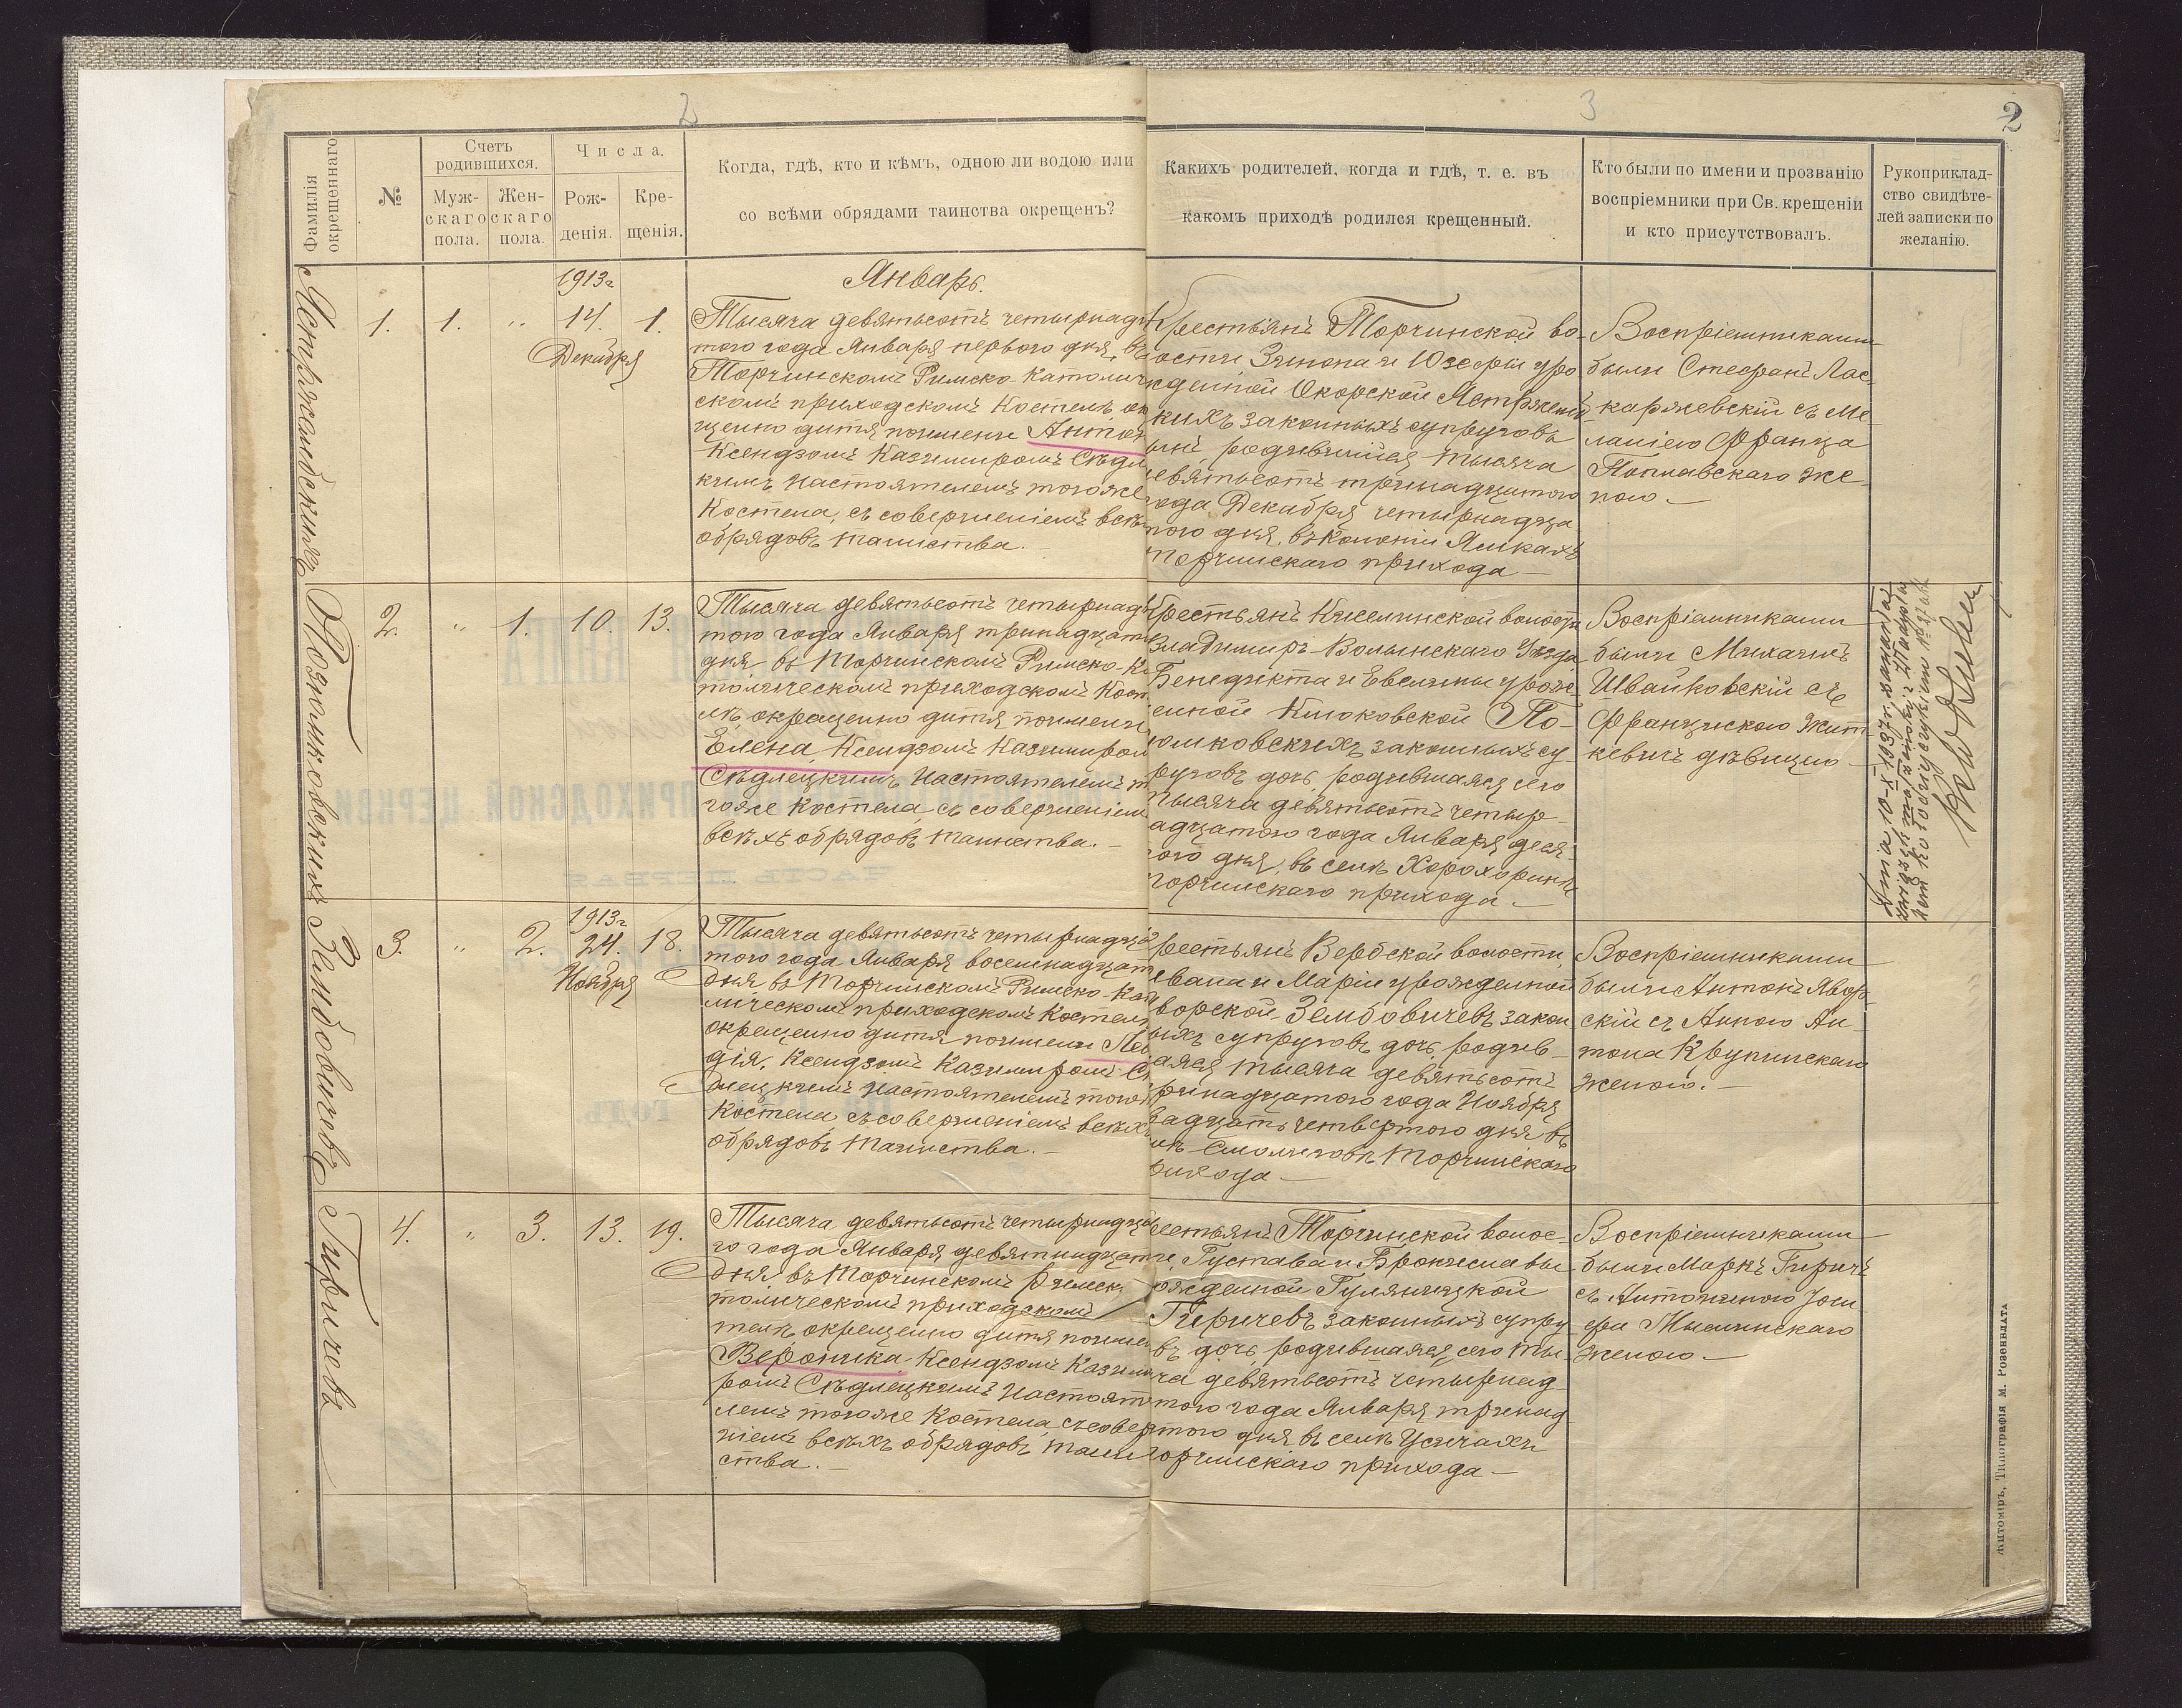 2
3
2
Фамилія
окрещеннаго
№
Счетъ
родившихся.
Муж-
скаго
пола.
Жен-
скаго
пола.
Числа.
Рож-
денія.
Кре-
щенія.
Когда, гдѣ, кто и кѣмъ, одною ли водою или
со всѣми обрядами таинства окрещенъ?
Какихъ родителей, когда и гдѣ, т. е. въ
какомъ приходѣ родился крещенный.
Кто были по имени и прозванію
воспріемники при Св. крещеніи
и кто присутствовалъ.
Рукоприклад-
ство свидѣте-
лей записки по
желанію.
Январь.
1.
1.
"
1913 г
14.
Декабря
1.
Тысяча девятьсотъ четырнадца
того года Января первого дня, въ
Торчинскомъ Римско-Католиче
скомъ приходскомъ Костелѣ, ок
щенно дитя поимени Антон
Ксендзомъ Казимиромъ Сѣдл
кимъ Настоятелемъ тогоже
Костела, съ совершеніемъ всѣ
обрядовъ таинства.
Крестьянъ Торчинской во-
ости Зинона и Юзефы уро
жденной Окорской
кихъ законныхъ супруговъ
родившійся тысяча
девятьсотъ тринадцатого
года Декабря четырнадца
того дня, въ Колоніи
Торчинскаго прихода
Воспріемниками
были Стефанъ Лас-
каржевскій съ Ме-
ланіею Франца
Поплавскаго же-
ною.
Позюмковскихъ
2.
"
1.
10.
13.
Тысяча девятьсотъ четырнадц
того года Января тринадцат
дня въ Торчинскомъ Римско-Ка
толическомъ приходскомъ Кост
лѣ, окрещенно дитя поимени
Елена, Ксендзомъ Казимиром
Сѣдлецкимъ Настоятелемъ т
гоже Костела, съ совершеніем
всѣхъ обрядовъ таинства.
Крестьянъ Киселинской волости
Владимиръ-Волынскаго Уѣзда
Бенедикта и Евелины урож-
енной Клюковской По-
юмковскихъ законныхъ су-
руговъ дочь, родившаяся сего
тысяча девятьсотъ четыр-
адцатого года Января деся-
ого дня, въ селѣ Хорохоринѣ
Торчинскаго прихода.
Воспріемниками
были Михаилъ
Ивайковскій съ
Францискою Жит-
кевичъ дѣвицею
Dnia 10-I 1937 r.
3.
"
2.
1913 г
24.
Ноября
18.
Тысяча девятьсотъ четырнадца
того года Января восемнадцат
дня въ Торчинскомъ Римско-Кат
лическомъ приходскомъ Костелѣ
окрещенно дитя поимени Лео
дія, Ксендзомъ Казимиромъ Сѣ
длецкимъ Настоятелемъ того
Костела, съ совершеніемъ всѣхъ
обрядовъ таинства.
рестьянъ Вербской волости,
Ивана и Маріи урожденной
ворской-Зембовичевъ закон
ыхъ супруговъ дочь, родив-
аяся тысяча девятьсотъ
ринадцатого года Ноября
вадцать четвертого дня въ
лѣ Смолиговѣ Торчинскаго
рихода
Воспріемниками
были Антонъ Явор-
скій съ Анною Ан-
тона Крупинскаго
женою.
Зембовичевъ
Гиричевъ
4.
"
3.
13.
19.
Тысяча девятьсотъ четырнадца
го года Января девятнадцат
дня, въ Торчинскомъ Римск
толическомъ приходскомъ
телѣ окрещенно дитя поиме
Вероника Ксендзомъ Казими
ромъ Сѣдлецкимъ Настоят
лемъ тогоже Костела, съ совер
ніемъ всѣхъ обрядовъ таин
ства.
рестьянъ Торчинской волос-
ти, Густава и Брониславы
рожденной Гуляницкой
Гиричевъ законныхъ супру
въ дочь, родившаяся сего ты-
ча девятьсотъ четырнад-
того года Января тринад-
того дня въ селѣ Усичахъ
Торчинскаго прихода
Воспріемниками
были Маркъ Гиричъ
съ Антониною Іоси-
фа Мыслинскаго
женою
Житомиръ, Типографія М. Розенблата